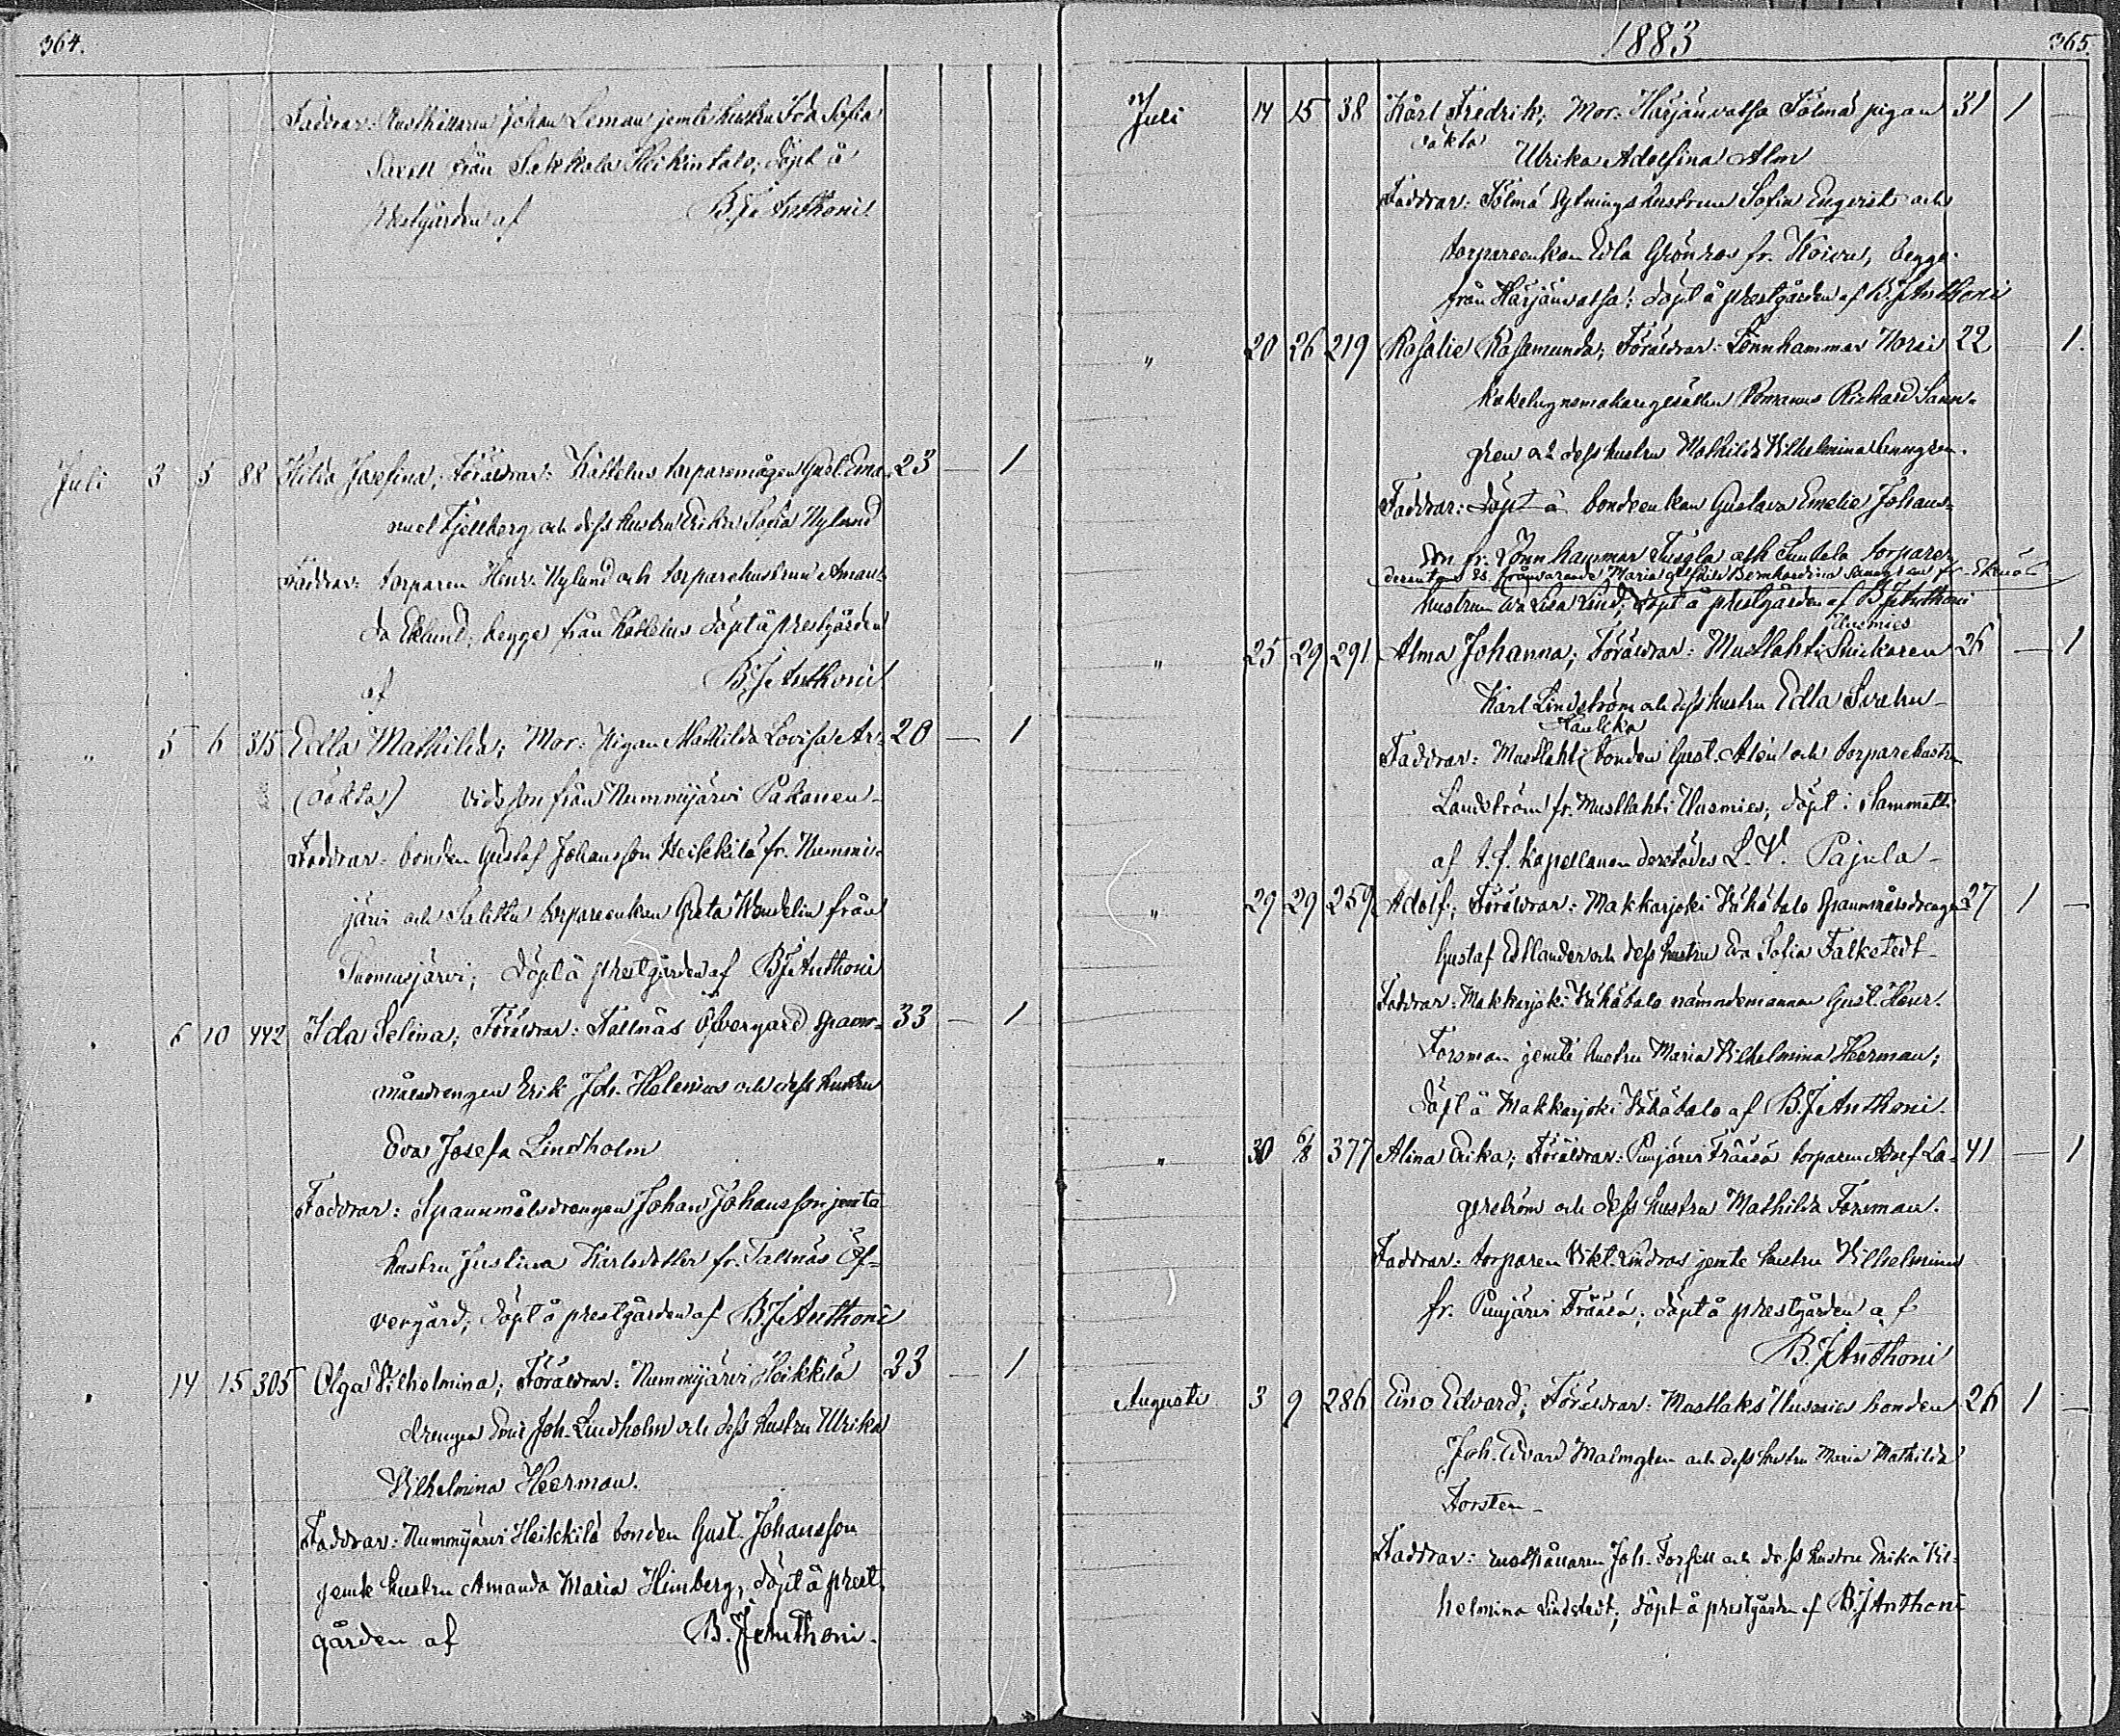 364.
Faddrar: Rusthållaren Johan Leman jemte hustru Ida Sofia
Savell från Sakkola Heikintalo; döpt å
prestgården af B. J. Anthoni.
Juli 3 5 88 Hilda Josefina; Föräldrar: Kattelus torparemågen Gust. Ema- 23 — 1
nuel Fjellberg och dess hustru Erika Sofia Nylund
Faddrar: torparen Henr. Nylund och torparehustrun Aman-
da Eklund, begge från Kattelus döpt å prestgården
af B. J. Anthoni
" 5 6 315 Edla Mathilda; Mor: Pigan Mathilda Lovisa Ar- 20 — 1
(oäkta) vidsson från Nummijärvi Pakanen-
Faddrar: bonden Gustaf Johansson Heikkilä fr. Nummi-
järvi och torpareenkan Greta Wendelin från
döpt å prestgården af B. J. Anthoni
" 6 10 442 Ida Selina; Föräldrar: Tallnäs Öfvergård spann- 33 — 1
målsdrengen Erik Joh. Helenius och dess hustru
Eva Josefa Lindholm
Faddrar: Spannmålsdrengen Johan Johansson jemte
hustru Justina Karlsdotter fr. Tallnäs Öf-
vergård; döpt å prestgården af B. J. Anthoni
" 14 15 305 Olga Vilhelmina; Föräldrar: Nummijärvi Heikkilä 23 — 1
drengen Joh. Lindholm och dess hustru Ulrika
Vilhelmina Heerman.
Faddrar: Nummijärvi Heikkilä bonden Gust. Johansson
jemte hustru Amanda Maria Himberg; döpt å prest-
gården af B. J. Anthoni.
1883 365.
Juli 14 15 38 Karl Fredrik; Mor: Härjänvatsa Tölmä pigan 31 1 —
oäkta Ulrika Adolfina Alm
Faddrar: Tölmä hytningshustrun Sofia Engvist och
torpareenkan Edla Grönroos fr. Koivu, begge
från Härjänvatsa; döpt å prestgården af B. J. Anthoni
" 20 26 219 Rosalie Rosamunda; Föräldrar: Lönnhammar Norri 22 1.
kakelugnsmakaregesällen Romanus Richard Sann-
gren och dess hustru Mathilda Vilhelmina Lenngren.
Faddrar: döpt å bondenkan Gustava Emelie Johans-
son fr. Lönnhammar och Suntela torpare-
Maria Bernhardina fr. Ekenäs
hustrun Eva Lisa Lind; döpt å prestgården af B. J. Anthoni
Uusmies
" 25 29 291 Alma Johanna; Föräldrar: Mustlahti Snickaren 26 — 1
Karl Lindström och dess hustru Edla Svahn-
Kaulika
Faddrar: Mustlahti bonden Gust. Alén och torparehustru
Landström fr. Mustlahti Uusmies; döpt i Sammatti
af t. f. kapellanen derstädes L. V. Pajula-
" 29 29 259 Adolf; Föräldrar: Makkarjoki Vähätalo spannmålsdrengen 27 1 —
Gustaf Edlander och dess hustru Eva Sofia Falkstedt-
Faddrar: Makkarjoki Vähätalo nämndemannen Gust. Henr.
Forsman jemte hustru Maria Vilhelmina Heerman;
döpt å Makkarjoki Vähätalo af B. J. Anthoni.
" 30 6/8 377 Alina Erika; Föräldrar: Punjärvi Frääsä torparen Adolf La- 41 — 1
gerström och dess hustru Mathilda Forsman.
Faddrar: torparen Vikt. Lindroos jemte hustru Vilhelmina
fr. Punjärvi Frääsä; döpt å prestgården af
B. J. Anthoni
Augusti 3 9 286 Eino Edvard; Föräldrar: Mustlahti Uusmies bonden 26 1 —
Joh. Edvard Malmgren och dess hustru Maria Mathilda
Forstén-
Faddrar: rusthållaren Joh. Forssell och dess hustru Erika Vil-
helmina Lindstedt; döpt å prestgården af B. J. Anthoni